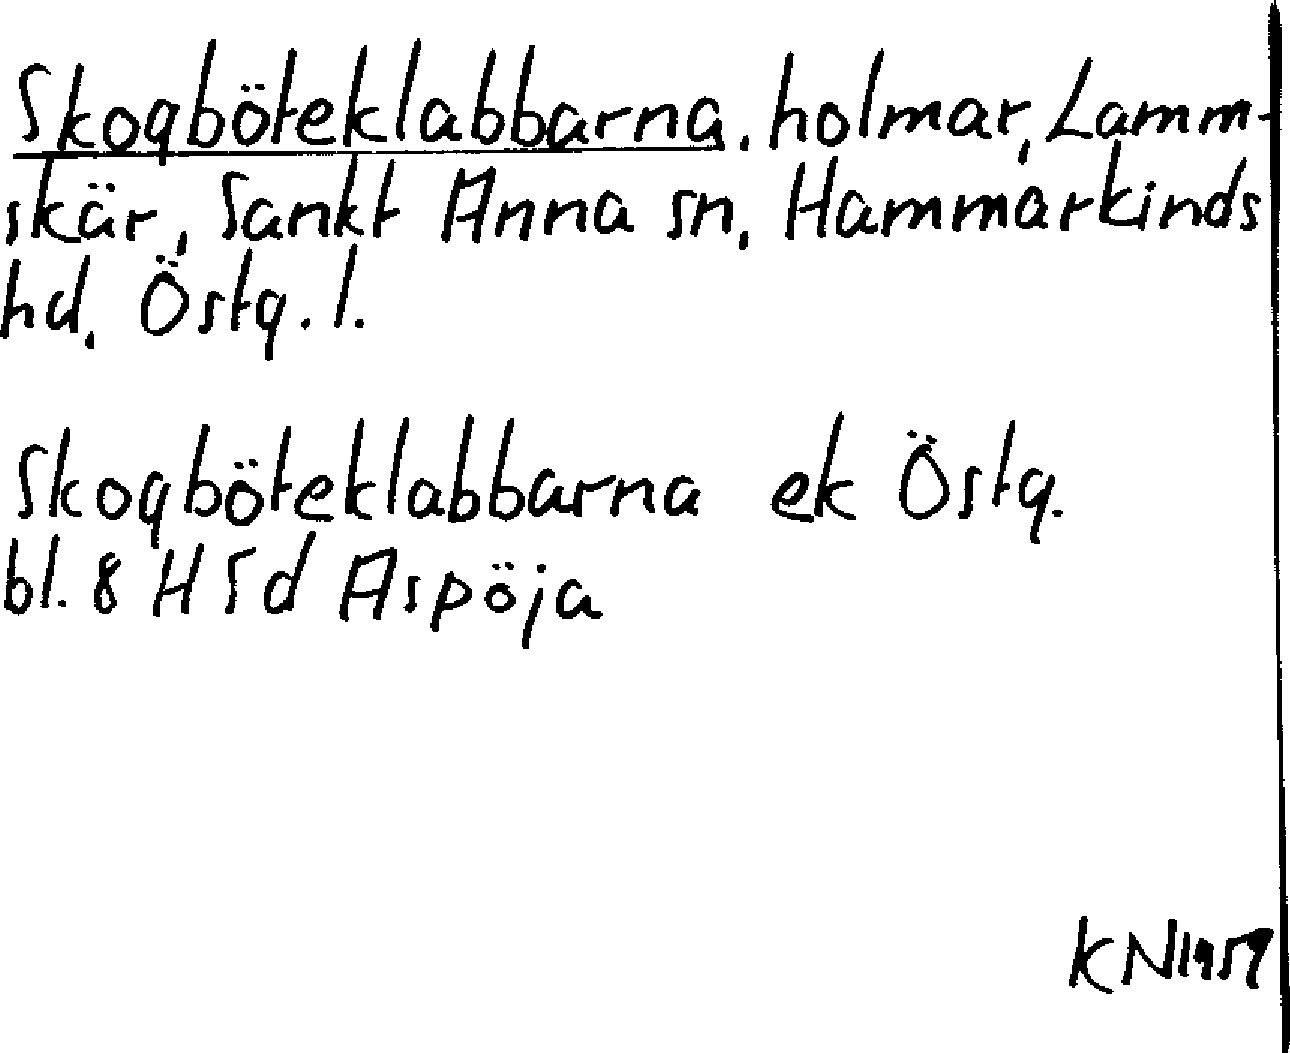 Skogböteklabbarna, holmar, Lamm-
skär, Sankt Anna sn, Hammarkinds
hd, Östg. l.
Skogböteklabbarna ek Östg.
bl. 8 H 5 d Aspöja
KN 1959